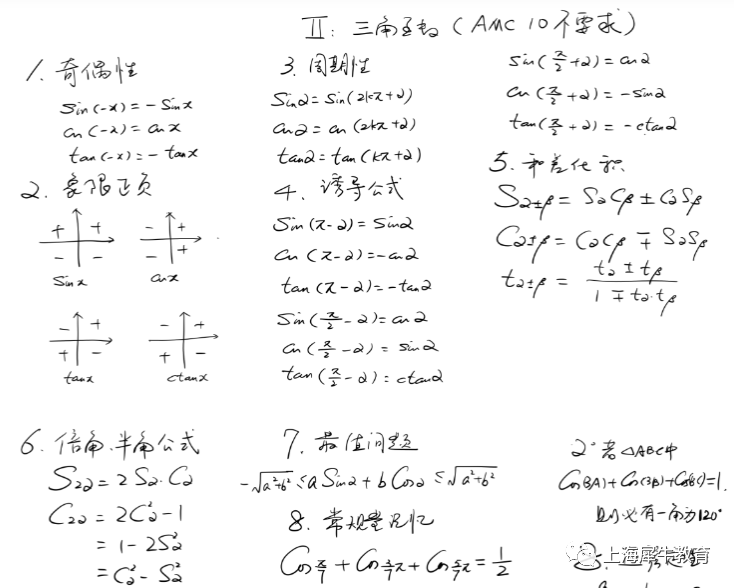 II: 三角函数 (AMC 10 不要求)
1. 奇偶性
sin(-x) = -sinx
cos(-x) = cosx
tan(-x) = -tanx
2. 象限正负
+ +
- -
sinx
- +
- +
cosx
- +
+ -
tanx
- +
+ -
ctanx
3. 周期性
sinα = sin(2kπ+α)
cosα = cos(2kπ+α)
tanα = tan(kπ+α)
4. 诱导公式
sin(π-α) = sinα
cos(π-α) = -cosα
tan(π-α) = -tanα
sin(π/2-α) = cosα
cos(π/2-α) = sinα
tan(π/2-α) = ctanα
sin(π/2+α) = cosα
cos(π/2+α) = -sinα
tan(π/2+α) = -ctanα
5. 和差化积
Sα±β = SαCβ ± CαSβ
Cα±β = CαCβ ∓ SαSβ
tα±β = (tα ± tβ)/(1 ∓ tα·tβ)
6. 倍角.半角公式
S2α = 2Sα·Cα
C2α = 2C²α-1
= 1-2S²α
= C²α-S²α
7. 最值问题
-√a²+b² ≤ aSinα+bCosα ≤ √a²+b²
8. 常规量记忆
Cos π/7 + Cos 3/7π + Cos 5/7π = 1/2
2° 若△ABC中
Cos(3A)+Cos(3B)+Cos(3C)=1.
则必有一角为120°
上海犀牛教育